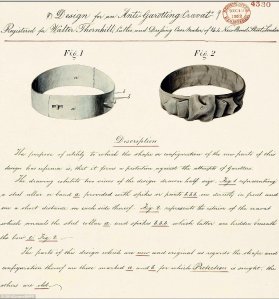 4530
Design for an Anti Garotting Cravat
Registered for Walter Thornhill, Cutler and Dressing Case Maker of 144 New Bond Street London
Fig. 1
Fig. 2
Description
The purpose of utility to which the shape or configuration of the new parts of this
design has reference is, that it forms a protection against the attempts of garotters.
The drawing exhibits two views of the design drawn half size. Fig. 1 representing
a steel collar or band a. provided with spikes or points b.b.b. one directly in front and
one a short distance on each side thereof. Fig. 2 represents the action of the cravat
which conceals the steel collar a and spikes b.b.b which latter are hidden beneath
the bow c. Fig. 2.
The parts of this design which are new and original as regards the shape and
configuration thereof are those marked a and b for which Protection is sought, the
others are old.